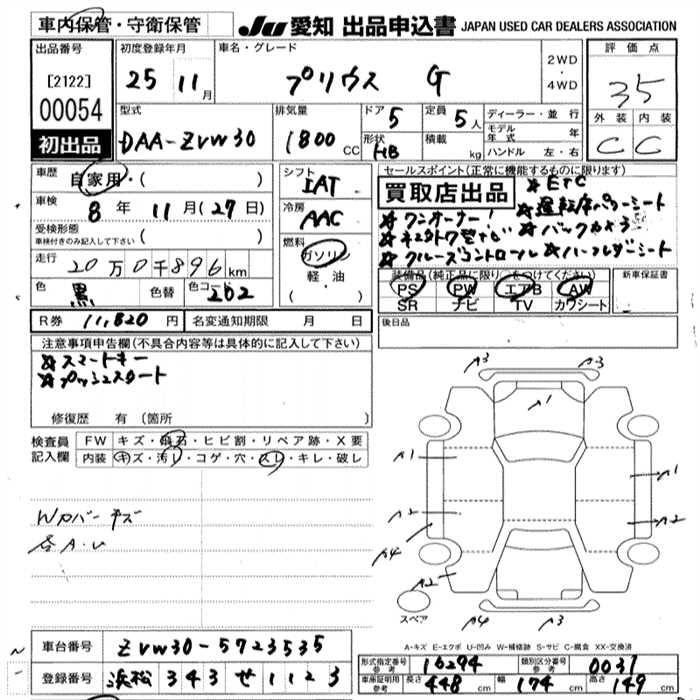 車内保管・守衛保管
JU 愛知 出品申込書 JAPAN USED CAR DEALERS ASSOCIATION
出品番号
[2122]
00054
初出品
初度登録年月
25 11月
車名・グレード
プリウス G
2WD
・
4WD
評価点
3.5
外装 内装
C C
型式
DAA-ZVW30
排気量
1800 CC
ドア 5
形状 HB
定員 5人
積載 kg
ディーラー・並行
モデル年式 年
ハンドル 左・右
車歴 自家用・( )
車検 8年 11月(27日)
受検形態
車検付きのみ記入して下さい ( )
走行 20万0千896km
色 黒 色替 色コード 202
シフト IAT
冷房 AAC
燃料
ガソリン
軽・油
・( )
セールスポイント(正常に機能するものに限ります)
買取店出品
☆ETC
☆ワンオーナー! ☆運転席パワーシート
☆バックカメラ
☆クルーズコントロール ☆ハーフレザーシート
装備品(純正品に限り○をつけてください)
PS PW エアB AW
SR ナビ TV カワシート
新車保証書
R券 11,820円 名変通知期限 月 日
後日品
注意事項申告欄(不具合内容等は具体的に記入して下さい)
☆スマートキー
☆プッシュスタート
修復歴 有(箇所
検査員記入欄
FW キズ・飛石・ヒビ割・リペア跡・X要
内装 キズ・汚レ・コゲ・穴・スレ・キレ・破レ
Wカバーキズ
各A・U
A3 A3
A1
A1 A1
A2 A2
A4
A2
A4 A3
スペア
A-キズ E-エクボ U-凹み W-補修跡 S-サビ C-腐食 XX-交換済
車台番号 ZVW30-5723535
登録番号 浜松 343 せ 1123
型式指定番号 参考 16294 類別区分番号 参考 0031
車庫証明用 参考 長さ 448cm 幅 174cm 高さ 149cm